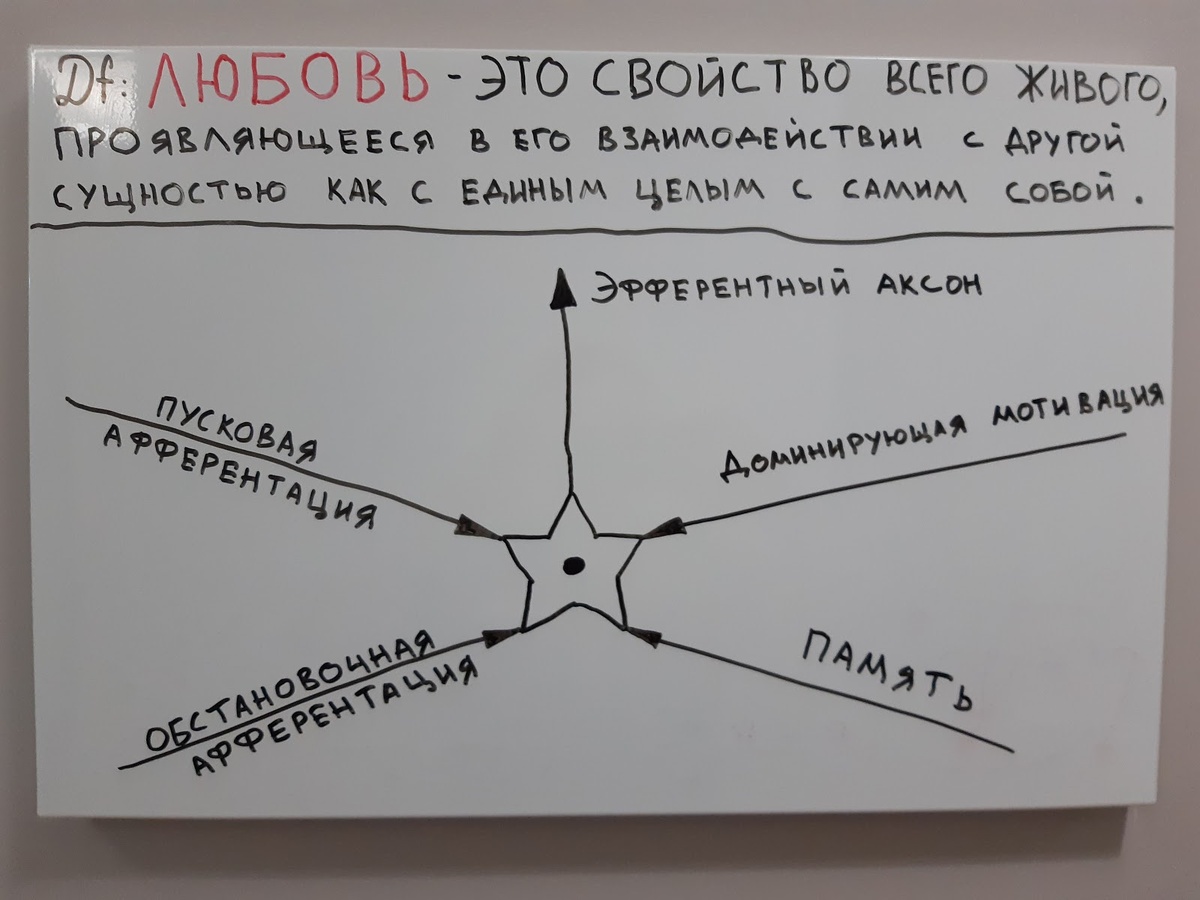 Df: ЛЮБОВЬ - ЭТО СВОЙСТВО ВСЕГО ЖИВОГО,
ПРОЯВЛЯЮЩЕЕСЯ В ЕГО ВЗАИМОДЕЙСТВИИ С ДРУГОЙ
СУЩНОСТЬЮ КАК С ЕДИНЫМ ЦЕЛЫМ С САМИМ СОБОЙ.
ЭФФЕРЕНТНЫЙ АКСОН
ПУСКОВАЯ
АФФЕРЕНТАЦИЯ
ДОМИНИРУЮЩАЯ МОТИВАЦИЯ
ОБСТАНОВОЧНАЯ
АФФЕРЕНТАЦИЯ
ПАМЯТЬ